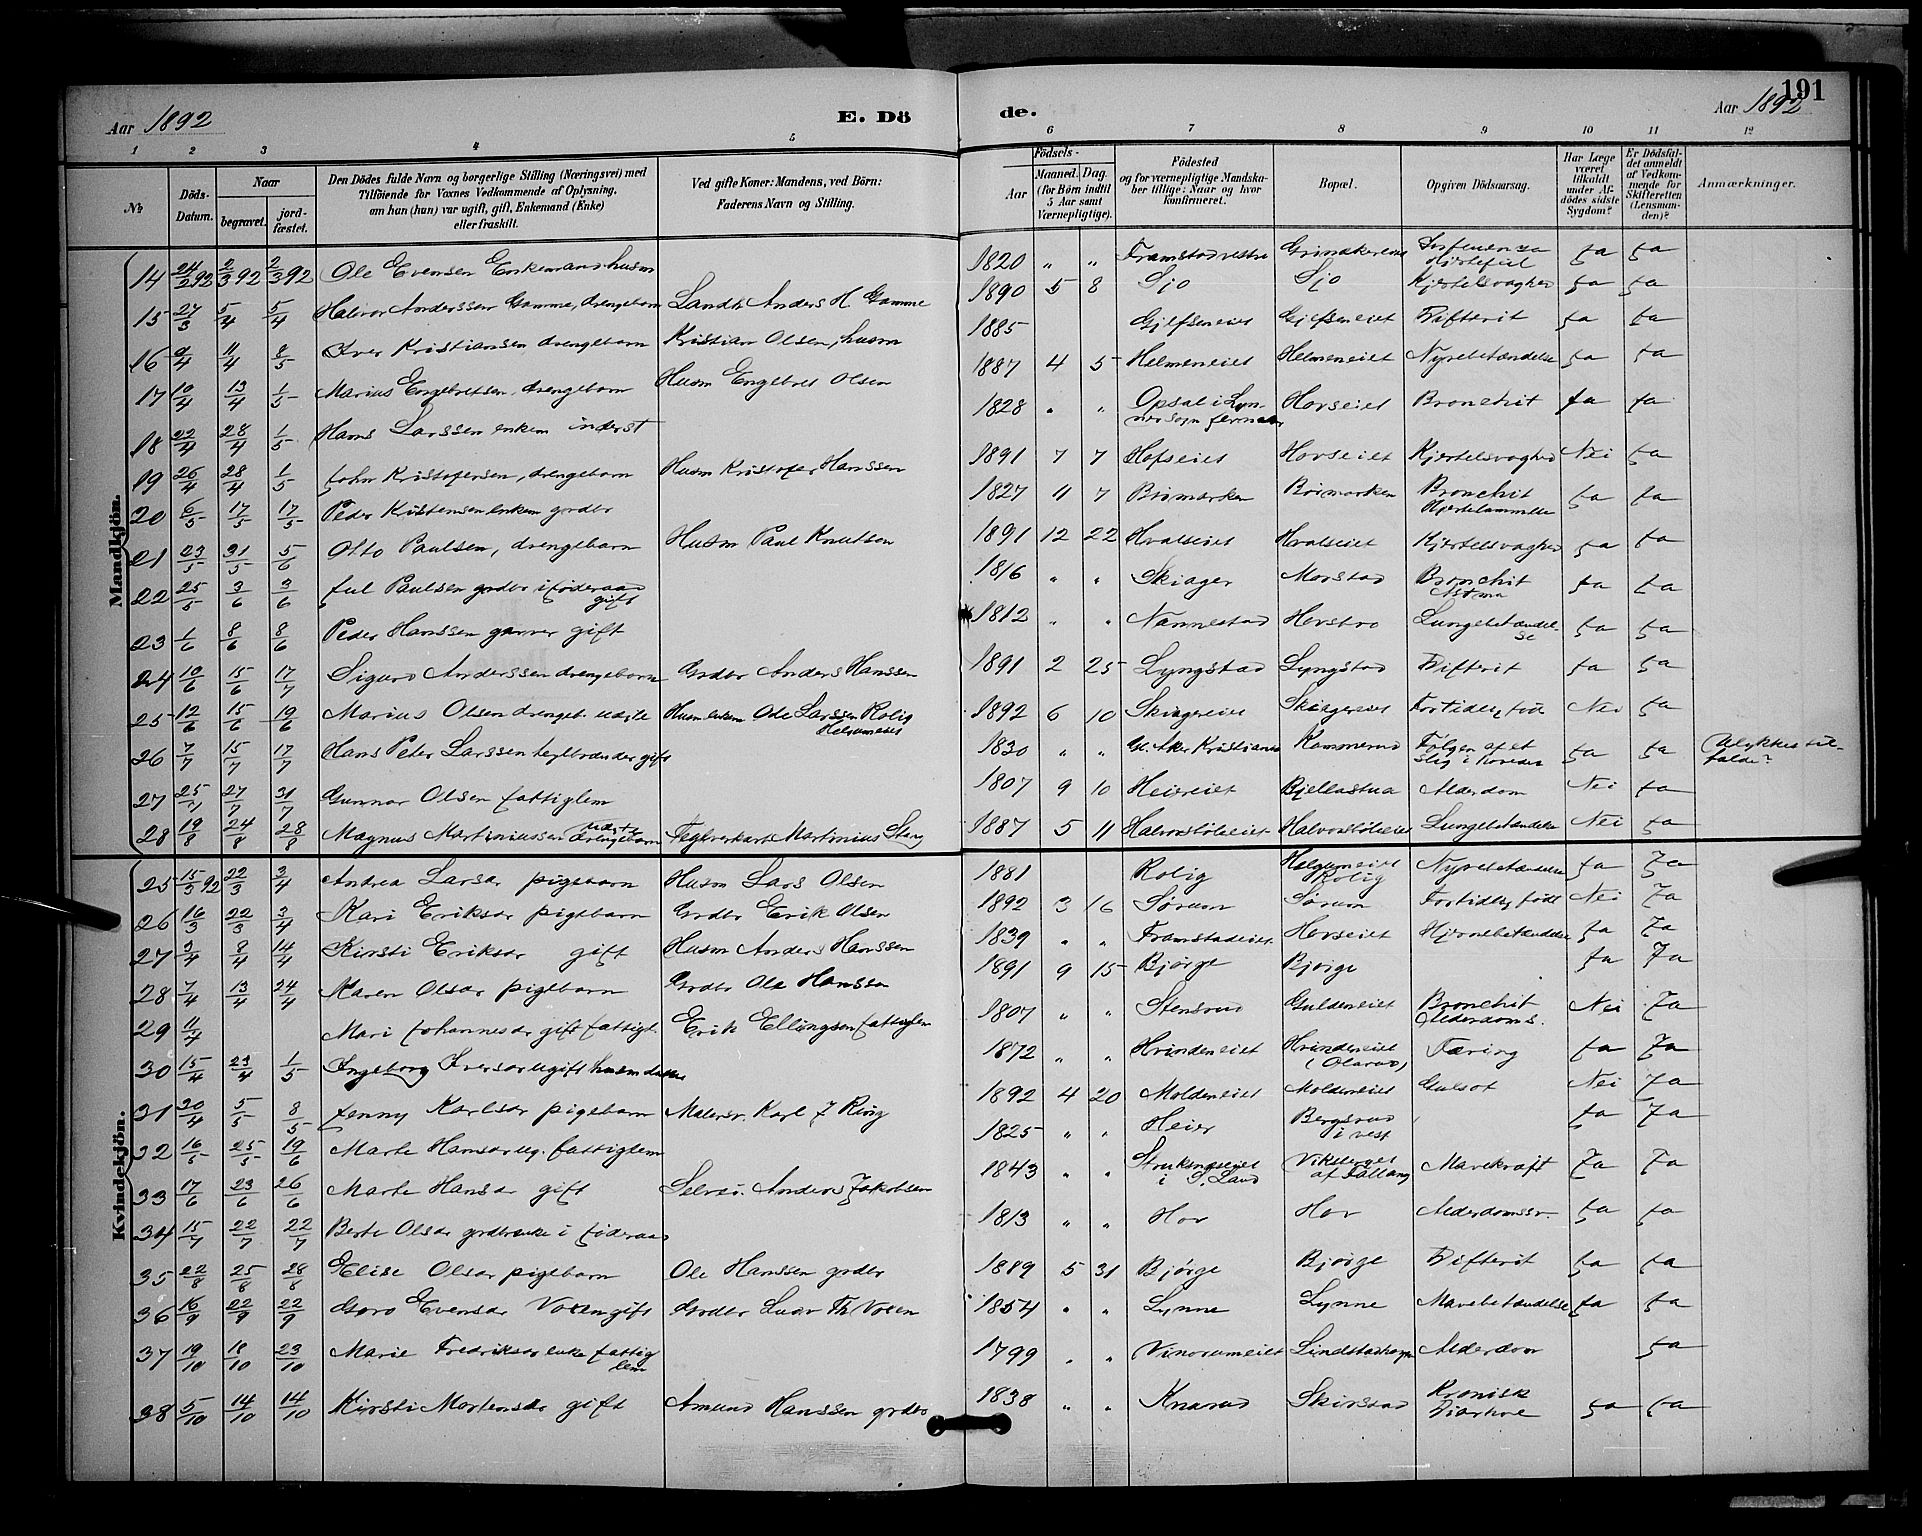 191
Aar 1892 E. Dö de. Aar 1892
1 2 3 4 5 6 7 8 9 10 11 12
No
Döds-Datum.
Naar
begravet.
jord-fæstet.
Den Dödes fulde Navn og borgerlige Stilling (Næringsvei) med
Tilföiende for Voxnes Vedkommende af Oplysning,
om han (hun) var ugift, gift, Enkemand (Enke)
eller fraskilt.
Ved gifte Koner: Mandens, ved Börn:
Faderens Navn og Stilling.
Födsels-
Aar
Maaned. Dag.
(for Börn indtil
5 Aar samt
Værnepligtige).
Födested
og for værnepligtige Mandska-
ber tillige: Naar og hvor
konfirmeret.
Bopæl.
Opgiven Dödsaarsag.
Har Læge
været
tilkaldt
under Af-
dödes sidste
Sygdom?
Er Dödsfal-
det anmeldt
af Vedkom-
mende for
Skifteretten
(Lensman-
den)?
Anmærkninger.
Mandkjön.
14 24/2 92 2/3 92 2/3 92 Ole Evensen Enkemand husm 1820 " " Framstadvestre Grinakereiet ja ja
15 27/3 5/4 5/4 Halvor Anderssen Gamme, drengebarn Landh Anders H Gamme 1890 5 8 Sjo Sjo Kjertelsvaghed ja ja
16 9/4 11/4 8/5 Iver Kristiansen drengebarn Kristian Olsen, husm 1885 Gjefseneiet Gjefseneiet Difterit ja ja
17 10/4 13/4 1/5 Marius Engebretsen, drengebarn Husm Engebret Olsen 1887 4 5 Helmeneiet Helmeneiet Nyrebetændelse ja ja
18 22/4 28/4 1/5 Hans Larssen enkem inderst 1828 " " Opsal i Lyn- Horseiet Bronchit ja ja
19 26/4 28/4 1/5 John Kristofersen, drengebarn Husm Kristofer Hanssen 1891 7 7 Hofseiet Horseiet Kjertelsvaghed Nei ja
20 6/5 17/5 17/5 Peder Kristensen enkem grdbr 1827 11 7 Brimarken Brimarken Bronchit
Hjertelammelse ja ja
21 23/5 31/5 5/6 Otto Paulsen, drengebarn Husm Paul Knutsen 1891 12 22 Hvalseiet Hvalseiet Kjertelsvaghed ja ja
22 25/5 3/6 3/6 Jul Paulsen grdbr i föderaad
gift 1816 " " Skiager Morstad Bronchit
Astma ja ja
23 1/6 8/6 8/6 Peder Hanssen garver gift 1812 " " Nannestad Horstad Lungebetændel-
se ja ja
24 10/6 15/6 17/7 Sigurd Anderssen drengebarn Grdbr Anders Hanssen 1891 2 25 Lyngstad Lyngstad Difterit ja ja
25 12/6 15/6 19/6 Marius Olsen drengeb. uægte Husm enkem Ole Larssen Rolig
Helgumeiet 1892 6 10 Skiagereiet Skiagereiet Fortidlig född Nei ja
26 7/7 15/7 17/7 Hans Peter Larssen teglbrænder gift 1830 " " Aker Kristiania Kammerud Fölgen af et
slag i hovedet ja ja Ulykkestil-
fælde?
27 25/7 27/7 31/7 Gunnar Olsen fattiglem 1807 9 10 Heiereiet Bjellastua Alderdom Nei ja
28 19/8 24/8 28/8 Magnus Martiniussen uægte
drengebarn Teglverkarb Martinius Sten 1887 5 11 Halvorstöleiet Halvorstöleiet Lungebetændelse Nei ja
Kvindekjön.
25 15/3 92 22/3 3/4 Andrea Larsdr pigebarn Husm Lars Olsen 1881 Rolig Helgumeiet
Rolig Nyrebetændelse ja Ja
26 16/3 22/3 3/4 Kari Eriksdr pigebarn Grdbr Erik Olsen 1892 3 16 Sörum Sörum Fortidlig födt Nei Ja
27 2/4 8/4 14/4 Kirsti Eriksdr gift Husm Anders Hanssen 1839 " " Framstadeiet Horseiet Hjernebetændelse ja Ja
28 7/4 13/4 24/4 Karen Olsdr pigebarn Grdbr Ole Hanssen 1891 9 15 Bjørge Bjørge ja Ja
29 11/4 Mari Johannesdr gift fattigl. Erik Ellingsen fattiglem 1807 " " Stensrud Guldeneiet Bronchit
Alderdoms. Nei Ja
30 15/4 23/4 1/5 Ingeborg Iversdr ugift husm datter 1872 " " Hvindeneiet Hvindeneiet
(Olarud) Tæring ja Ja
31 30/4 5/5 8/5 Jenny Karlsdr pigebarn Malersv. Karl J Ring 1892 4 20 Moldeneiet Moldeneiet Gulsot Nei Ja
32 16/5 25/5 19/6 Marte Hansdr ug. fattiglem 1825 " " Heier Bergsrud
i vest ja Ja
33 17/6 23/6 26/6 Marte Hansdr gift Selvei. Anders Jakobsen 1843 " " i S. Land af Fallang Mavekræft Ja Ja
34 15/7 22/7 22/7 Berte Olsdr grdbrenke i föderaad 1813 " " Hov Hov Alderdomssv. ja ja
35 22/8 25/8 28/8 Elise Olsdr pigebarn Ole Hanssen grdbr 1889 5 31 Bjørge Bjørge Difterit ja ja
36 16/9 22/9 22/9 Goro Evensdr Voxen gift Grdbr Ludv Th Voxen 1854 " " Lynne Lynne Mavebetændelse ja ja
37 19/10 18/10 23/10 Marie Fredriksdr enke fattig
lem 1799 " " Vinorumeiet Lindstadhagen Alderdom ja
38 5/10 14/10 14/10 Kirsti Mortensdr gift Amund Hanssen grdbr 1838 " " Knarud Skirstad Kronisk
Diarhoe ja ja